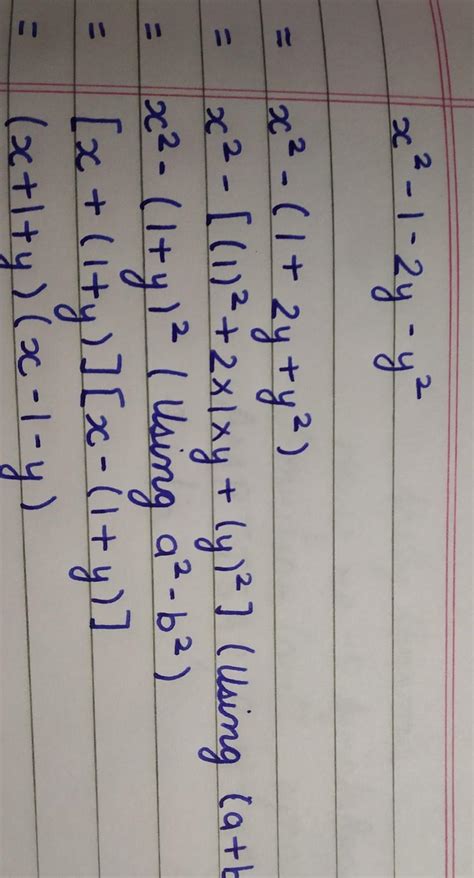 x² - 1 - 2y - y²
= x² - (1 + 2y + y²)
= x² - [(1)² + 2×1×y + (y)²] (Using (a+b
= x² - (1+y)² (Using a² - b²)
= [x + (1+y)][x - (1+y)]
= (x+1+y)(x-1-y)